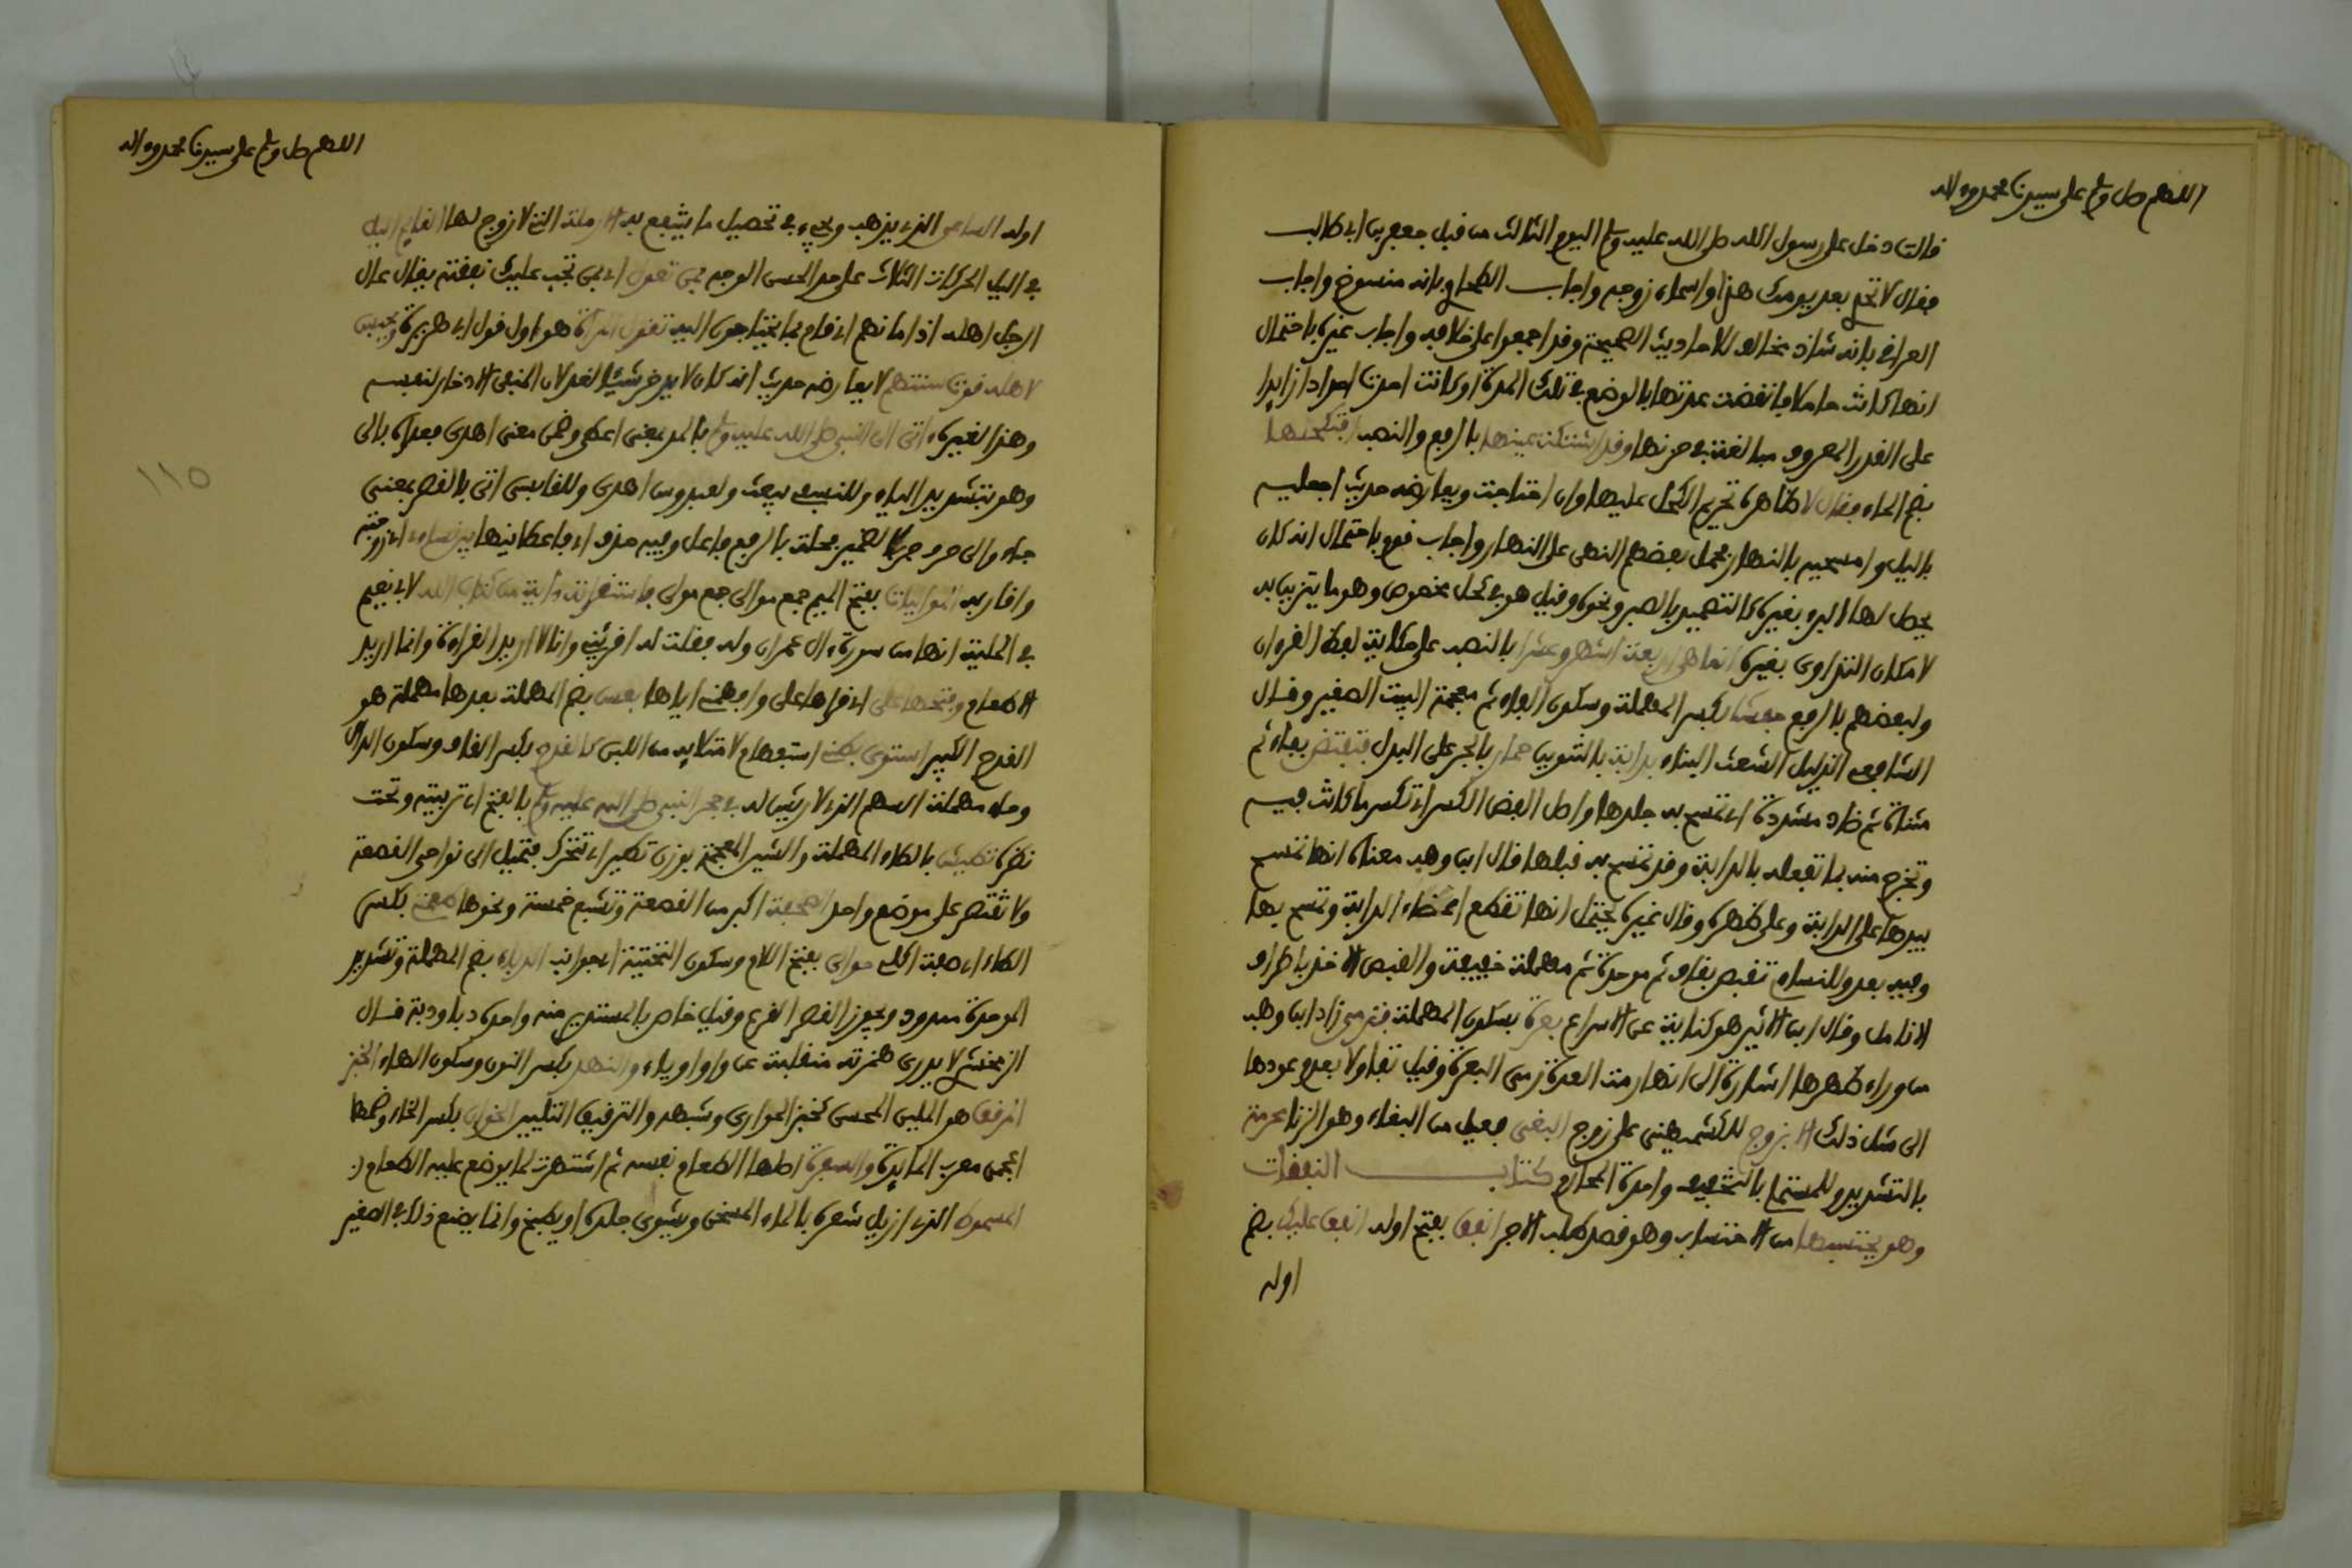 اللهم صل وسلم على سيدنا محمد وءاله
قالت دخل على رسول الله صلى الله عليه وسلم اليوم الثالث من قتل جعفر بن ابي طالب
فقال لا تحدي بعد يومك هذا واسماء زوجه واجاب الطحاوي بانه منسوخ واجاب
العراقي بانه شاذ مخالف للاحاديث الصحيحة وقد اجمعوا على خلافه واجاب غيره باحتمال
انها كانت حاملا فانقضت عدتها بالوضع في تلك المدة او كانت احدت احدادا زايدا
على القدر المعروف مبالغة في حزنها وقد اشتكت عينها بالرفع والنصب افتكحلها
بضم الحاء فقال لا ظاهره تحريم الكحل عليها وان احتاجت ويعارضه حديث اجعليه
باليل وامسحيه بالنهار فحمل بعضهم النهي على النهار واجاب قوم باحتمال انه كان
يحصل لها البرء بغيره كالتضميد بالصبر ونحوه وقيل هو في كحل مخصوص وهو ما يتزين به
لامكان التداوي بغيره انما هي اربعة اشهر وعشرا بالنصب على حكاية لفظ القرءان
ولبعضهم بالرفع حفشا بكسر المهملة وسكون الفاء ثم معجمة البيت الصغير وقال
الشافعي الذليل الشعث البناء بدابة بالتنوين حمار بالجر على البدل فتفتض بفاء ثم
مثناة ثم ضاد مشددة اي تمسح به جلدها واصل الفض الكسر اي تكسر ما كانت فيه
وتخرج منه بما تفعله بالدابة وقد تمسح به قبلها قال ابن وهب معناه انها تمسح
بيدها على الدابة وعلى ظهره وقال غيره يحتمل انها تقطع اعضاء الدابة وتمسح بها
وفيه بعد وللنساءي تقبص بقاف ثم موحدة ثم مهملة خفيفة والقبص الاخذ باطراف
الانامل وقال ابن الاثير هو كناية عن الاسراع بعرة بسكون المهملة فترمي زاد ابن وهب
من وراء ظهرها اشارة الى انها رمت العدة رمي البعرة وقيل تفاولا بعدم عودها
الى مثل ذلك الا بزوج للكشميهني على زوج البغي فعيل من البغاء وهو الزنا محرمة
بالتشديد وللمستملي بالتخفيف واحدة المحارم كتاب النفقات
وهو يحتسبها من الاحتساب وهو قصد طلب الاجر انفق بفتح اوله انفق عليك بضم
اوله
اللهم صل وسلم على سيدنا محمد وءاله
اوله الساعي الذي يذهب ويجيء في تحصيل ما ينفع به الارملة التي لا زوج لها القايم اليل
في اليل الحركات الثلاث على حد الحسن الوجه بمن تعول اي بمن تجب عليك نفقته يقال عال
الرجل اهله اذا مانهم اي قام بما يحتاجون اليه تقول المرأة هو اول قول ابي هريرة ويحبس
لاهله قوت سنتهم لا يعارضه حديث انه كان لا يدخر شيئا لغد لان المنفي الادخار لنفسه
وهذا لغيره ءاتى الي النبي صلى الله عليه وسلم بالمد بمعنى اعطى وضمن معنى اهدى فعداه بالى
وهو بتشديد الياء وللنسفي بعث ولعبدوس اهدى وللقابسي اتى بالقصر بمعنى
جاء والى حرف جر بلا ضمير فحلة بالرفع فاعل وفيه حذف اي فاعطانيها بين نساءي اي زوجته
واقاربه المواليات بفتح الميم جمع موالى جمع مولى فاستقراته ءاية من كتاب الله لابي نعيم
في الحلية انها من سورة ءال عمران وله فقلت له اقرئني وانا لا اريد القراءة وانما اريد
الاطعام وفتحها على اي قراها على وافهمني اياها بعس بضم المهملة بعدها مهملة هو
القدح الكبير استوى بطني استقام لامتلايه من اللبن كالقدح بكسر القاف وسكون الدال
وحاء مهملة السهم الذي لا ريش له في حجر النبي صلى الله عليه وسلم بالفتح اي تربيته وتحت
نظره تطيش بالطاء المهملة والشين المعجمة بوزن تطير اي تتحرك فتميل الى نواحي القصعة
ولا تقتصر على موضع واحد الصحفة اكبر من القصعة وتشبع خمسة ونحوها طعمتي بكسر
الطاء اي صفة اكلي حوالي بفتح اللام وسكون التحتية اي جوانب الدباء بضم المهملة وتشديد
الموحدة ممدود ويجوز القصر القرع وقيل خاص بالمستدير منه واحده دباودبة قال
الزمخشري لا يدرى همزته منقلبة عن واو او ياء والنهد بكسر النون وسكون الهاء الخبز
المرقق هو الملين المحسن كخبز الحوارى وشبهه والترقيق التليين الخوان بكسر الخاء وضمها
اعجمي معرب المايدة والسفرة اصلها الطعام نفسه ثم اشتهرت لما يوضع عليه الطعام
المسموط الذي ازيل شعره بالماء المسخن ويشوى بجلده او يطبخ وانما يصنع ذلك في الصغير
١١٥